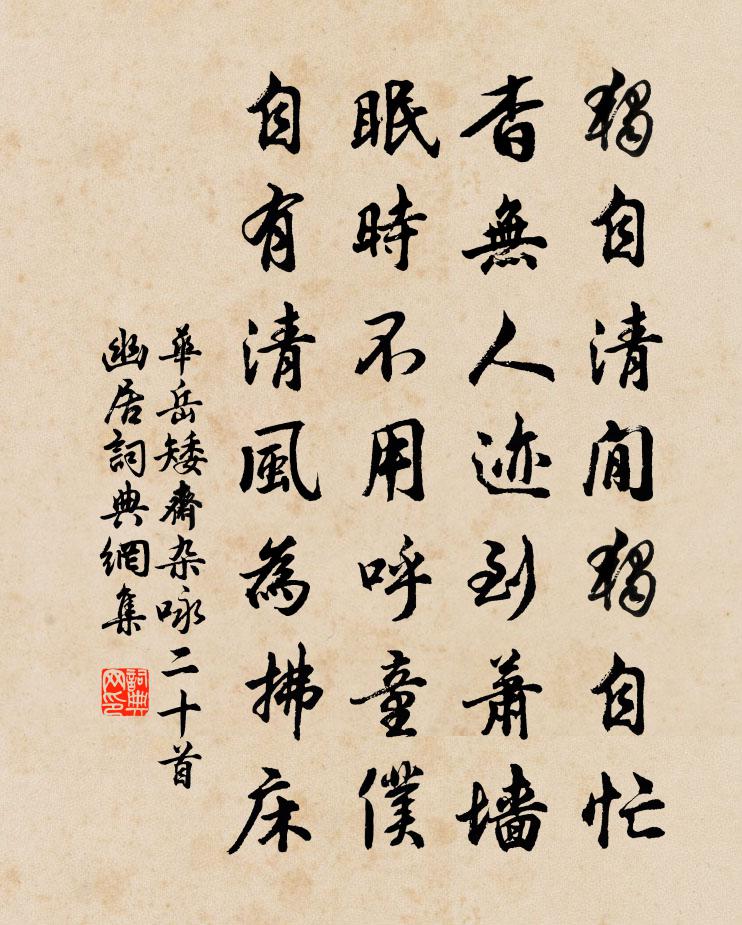 獨自清閒獨自忙
杳無人迹到蕭墻
眠時不用呼童僕
自有清風為拂床
華岳矮齋杂咏二十首
幽居詞典網集
詞典网印